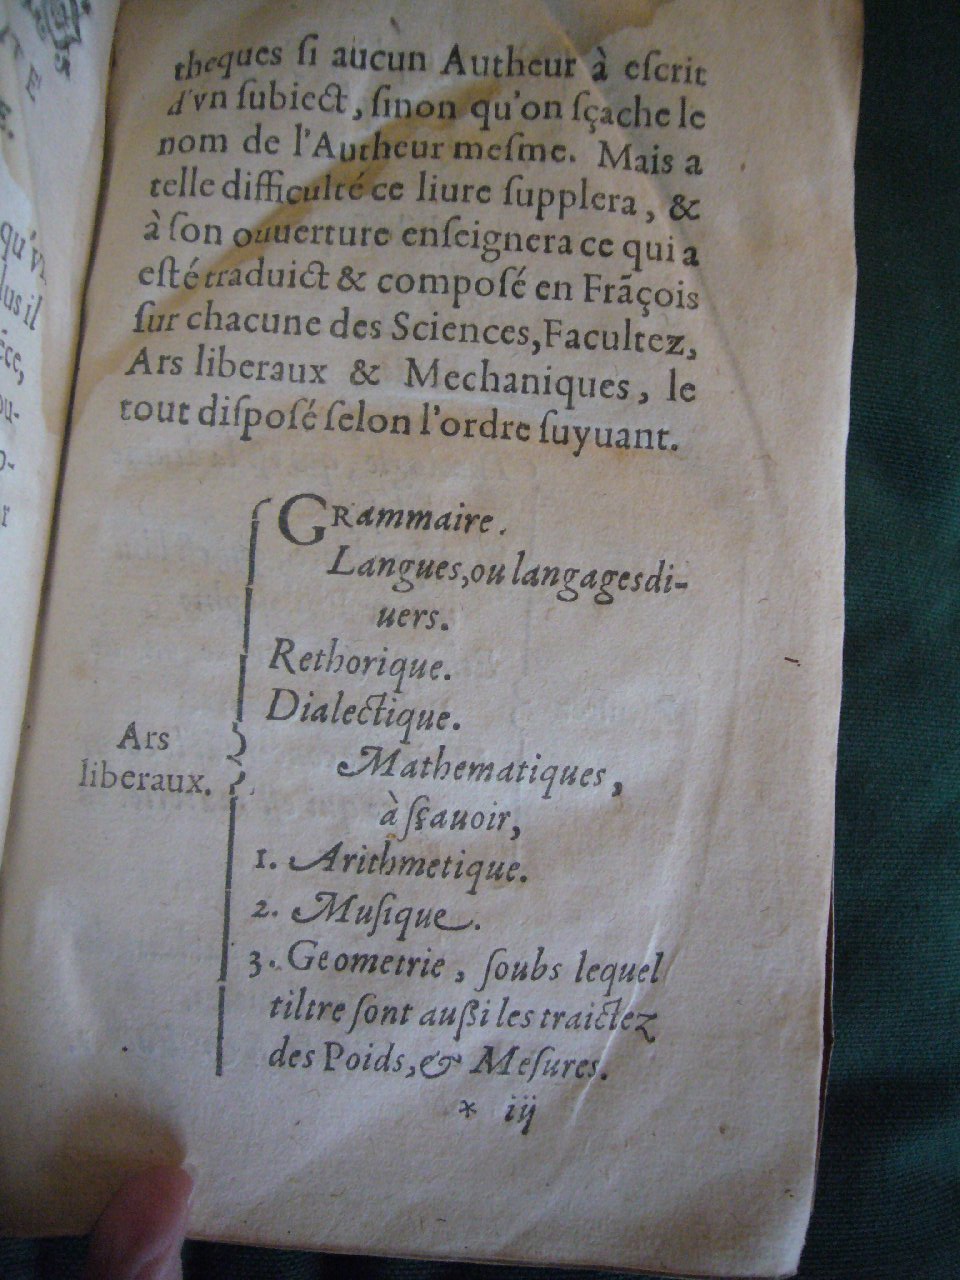 theques si aucun Autheur à eſcrit
d'vn subiect, ſinon qu'on sçache le
nom de l'Autheur meſme. Mais a
telle difficulté ce liure ſupplera, &
à ſon ouuerture enſeignera ce qui a
eſté traduict & compoſé en Frãçois
ſur chacune des Sciences, Facultez,
Ars liberaux & Mechaniques, le
tout diſpoſé ſelon l'ordre ſuyuant.
GRammaire.
Langues, ou langages di-
uers.
Rethorique.
Dialectique.
Ars
liberaux.
Mathematiques,
à ſçauoir,
1. Arithmetique.
2. Muſique.
3. Geometrie, ſoubs lequel
tiltre ſont außi les traictez
des Poids, & Meſures.
* iij
qu'vn
lus il